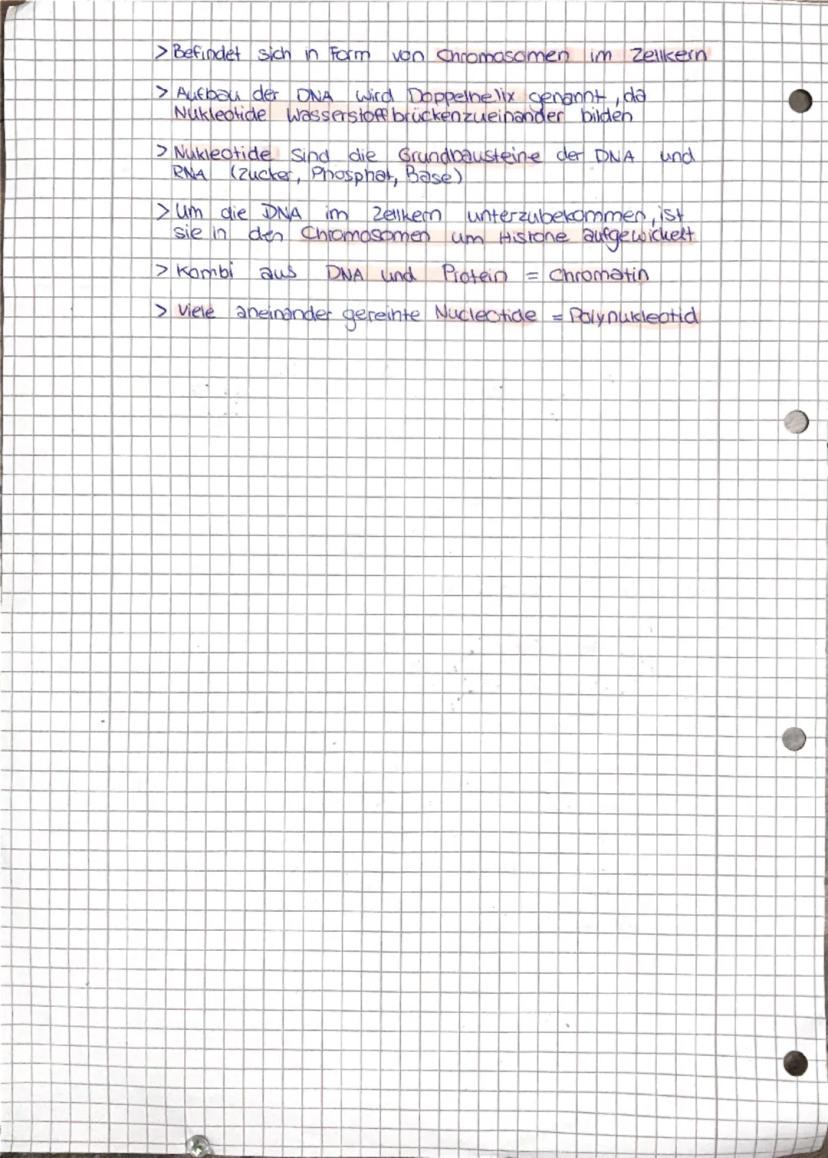 > Befindet sich in Form von Chromosomen im Zellkern
> Aufbau der DNA wird Doppelhelix genannt, da
Nukleotide Wasserstoffbrücken zueinander bilden
> Nukleotide sind die Grundbausteine der DNA und
RNA (Zucker, Phosphat, Base)
> Um die DNA im Zellkern unterzubekommen, ist
sie in den Chromosomen um Histone aufgewickelt
> Kombi aus DNA und Protein = Chromatin
> Viele aneinander gereihte Nucleotide = Polynukleotid